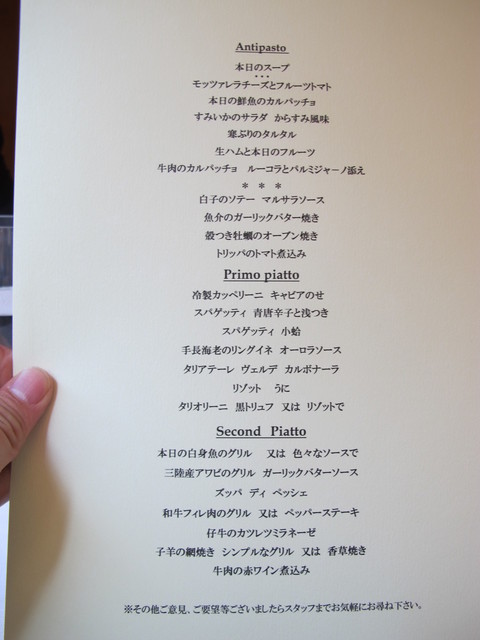 Antipasto
本日のスープ
•••
モッツァレラチーズとフルーツトマト
本日の鮮魚のカルパッチョ
すみいかのサラダ からすみ風味
寒ぶりのタルタル
生ハムと本日のフルーツ
牛肉のカルパッチョ ルーコラとパルミジャーノ添え
＊ ＊ ＊
白子のソテー マルサラソース
魚介のガーリックバター焼き
殻つき牡蠣のオーブン焼き
トリッパのトマト煮込み
Primo piatto
冷製カッペリーニ キャビアのせ
スパゲッティ 青唐辛子と浅つき
スパゲッティ 小蛤
手長海老のリングイネ オーロラソース
タリアテーレ ヴェルデ カルボナーラ
リゾット うに
タリオリーニ 黒トリュフ 又は リゾットで
Second Piatto
本日の白身魚のグリル 又は 色々なソースで
三陸産アワビのグリル ガーリックバターソース
ズッパ ディ ペッシェ
和牛フィレ肉のグリル 又は ペッパーステーキ
仔牛のカツレツミラネーゼ
子羊の網焼き シンプルなグリル 又は 香草焼き
牛肉の赤ワイン煮込み
※その他ご意見、ご要望等ございましたらスタッフまでお気軽にお尋ね下さい。